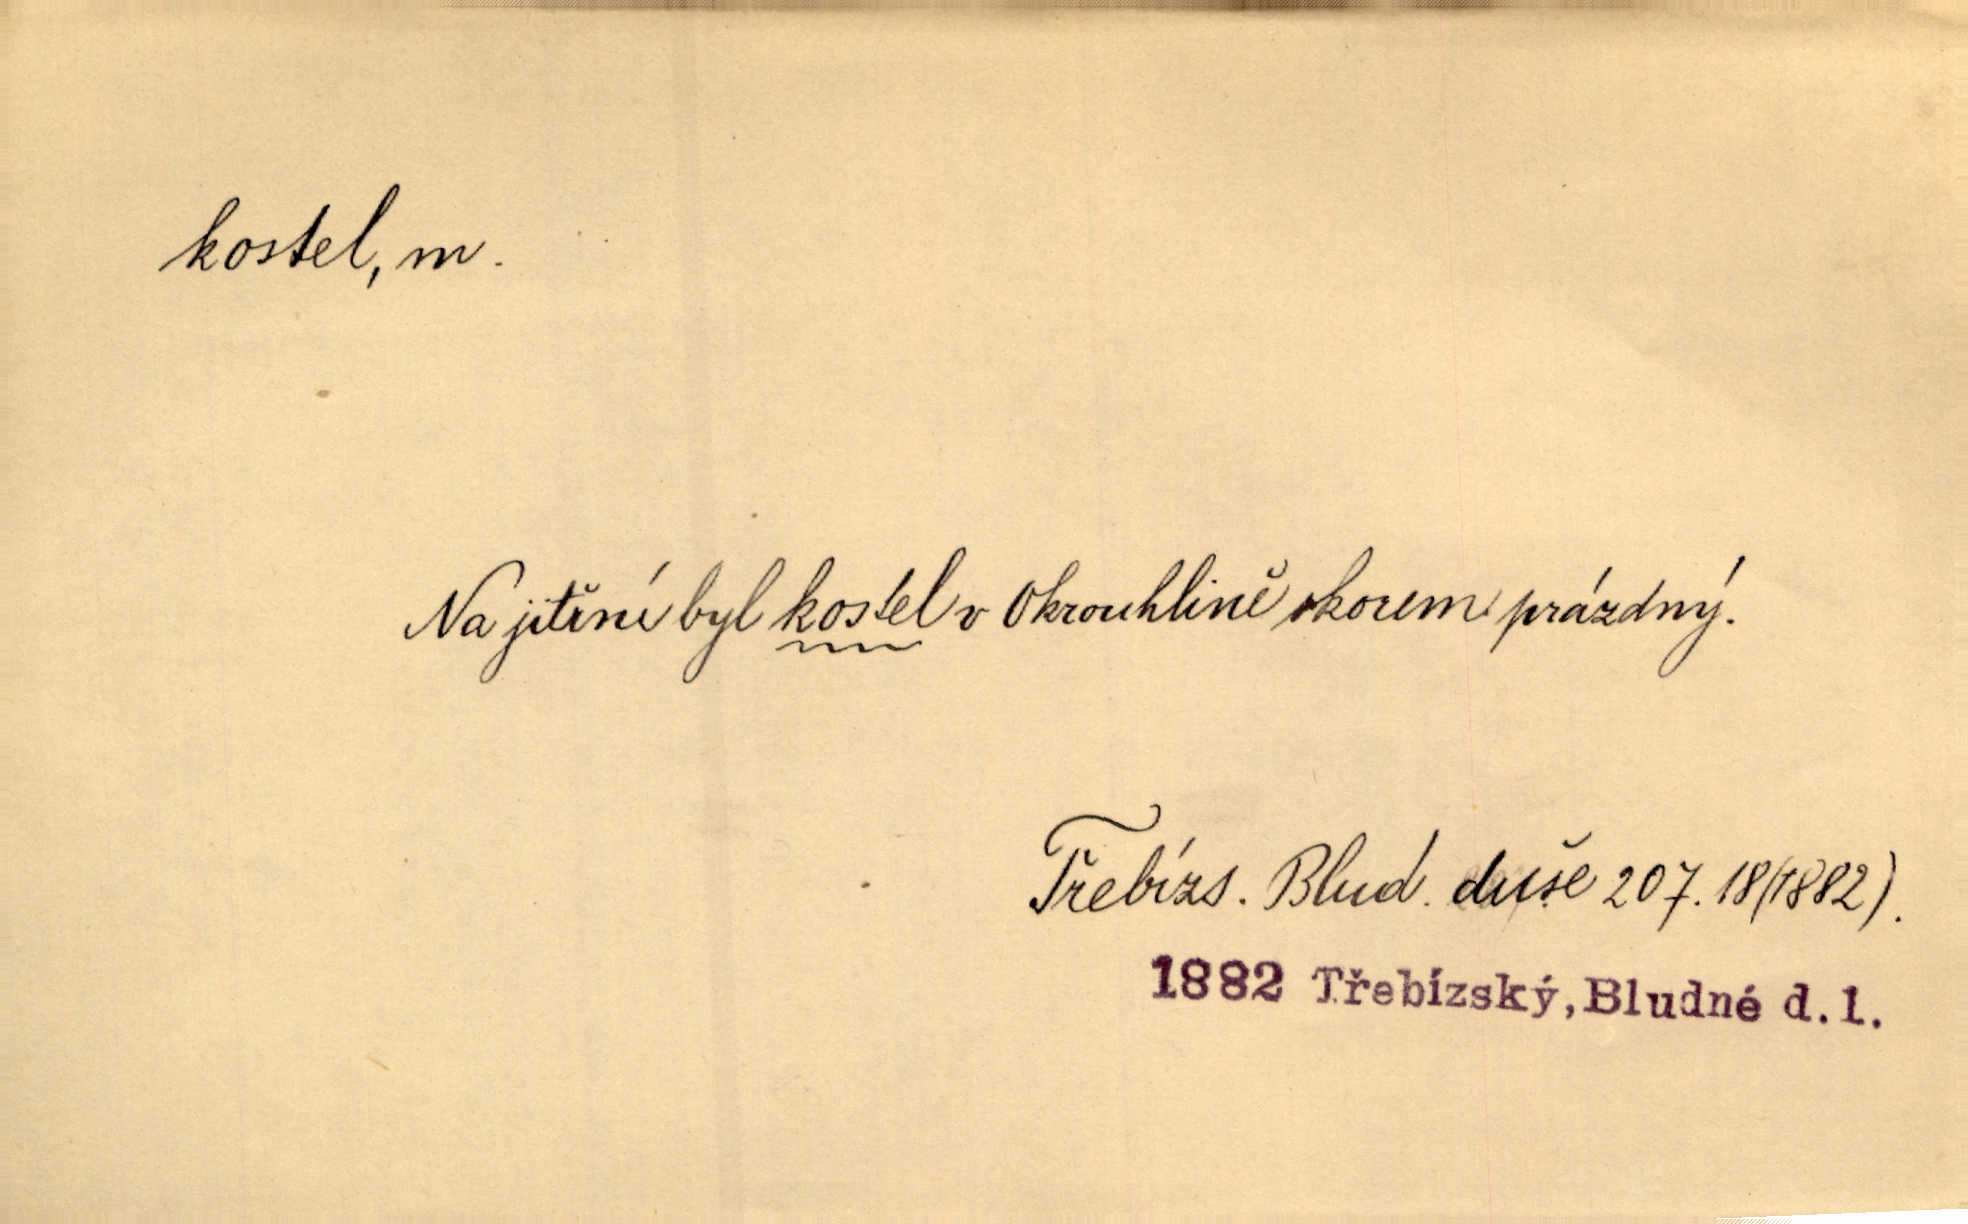 kostel, m.
Na jitřní byl kostel v Okrouhlině skorem prázdný.
Třebízs. Blud. duše 207. 18 (1882).
1882 Třebízský, Bludné d. 1.